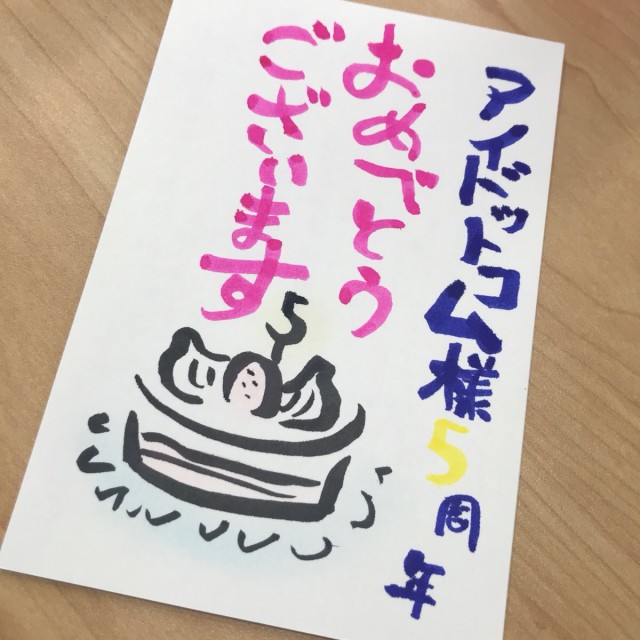 アイドットコム様5周年
おめでとう
ございます
5